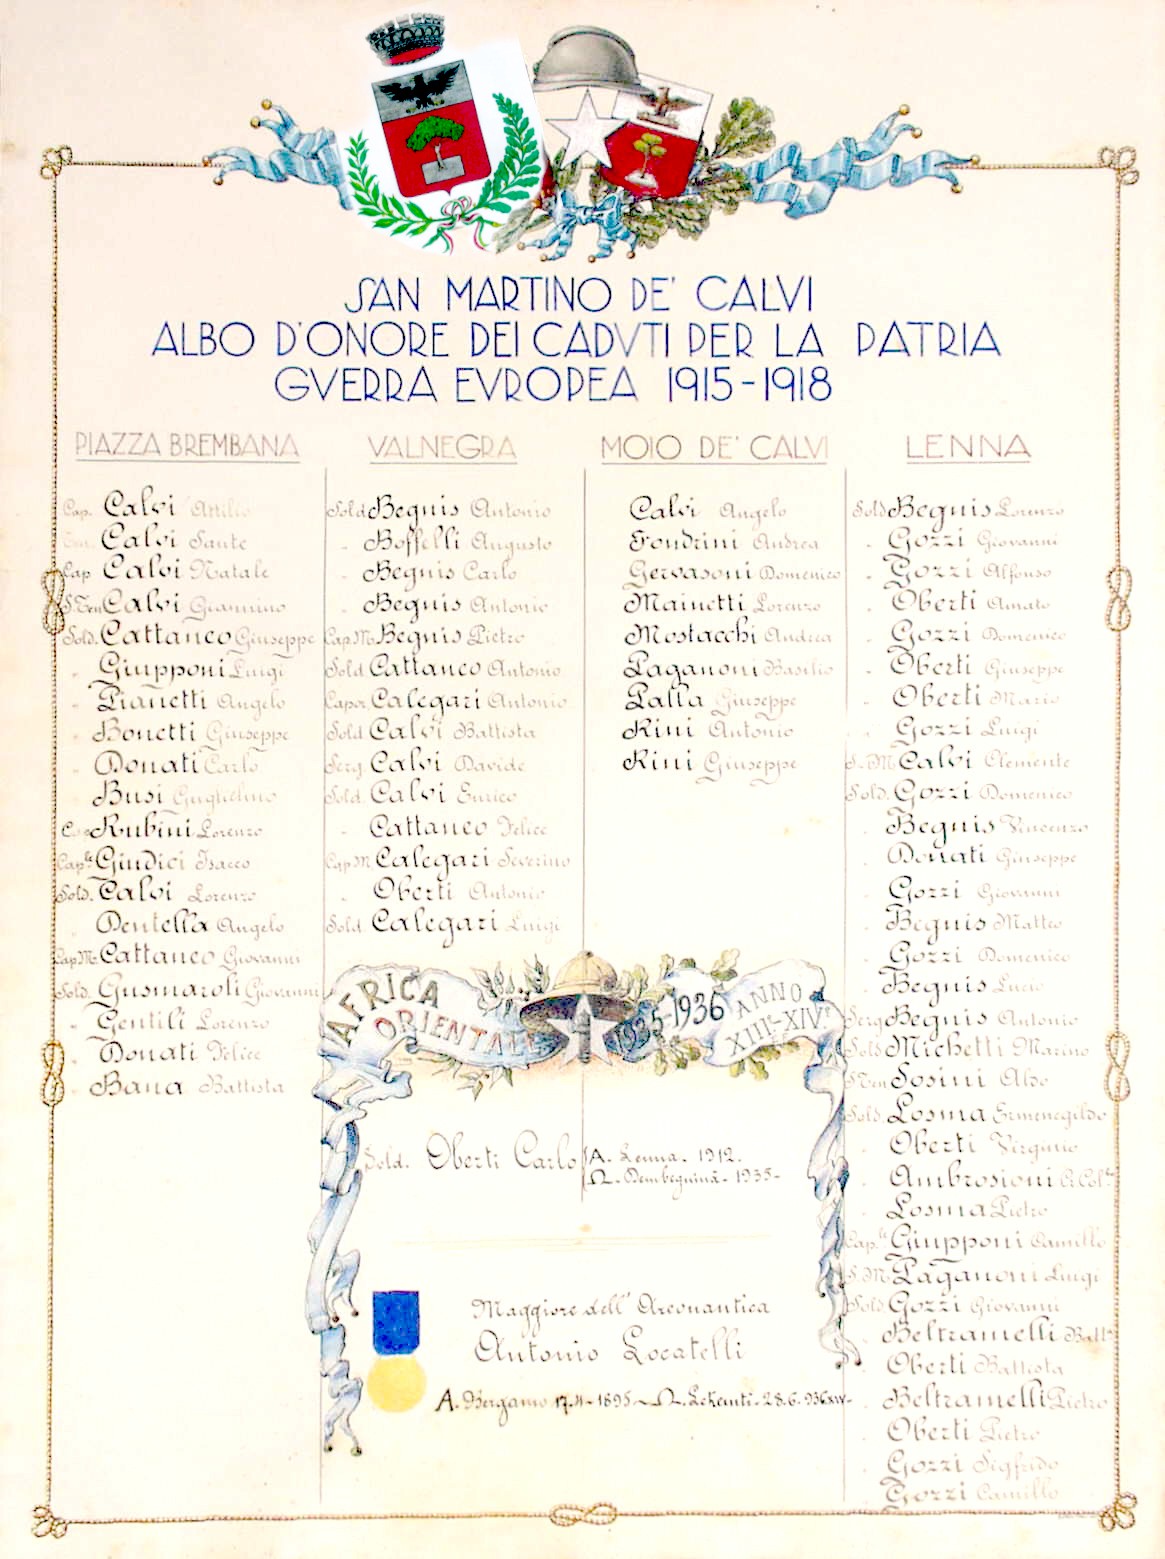 SAN MARTINO DE' CALVI
ALBO D'ONORE DEI CADVTI PER LA PATRIA
GVERRA EVROPEA 1915-1918
PIAZZA BREMBANA
Cap. Calvi Attilio
Ten. Calvi Sante
Cap Calvi Natale
S.Ten Calvi Giannino
Sold. Cattaneo Giuseppe
" Giupponi Luigi
" Pianetti Angelo
" Bonetti Giuseppe
" Donati Carlo
Busi Guglielmo
Rubini Lorenzo
Cap.le Giudici Isacco
Sold. Calvi Lorenzo
" Dentella Angelo
Cap.M. Cattaneo Giovanni
Sold. Gusmaroli Giovanni
" Gentili Lorenzo
" Donati Felice
" Bana Battista
VALNEGRA
Sold Begnis Antonio
" Boffelli Augusto
" Begnis Carlo
" Begnis Antonio
Cap.M. Begnis Pietro
Sold Cattaneo Antonio
Capor Calegari Antonio
Sold Calvi Battista
Serg Calvi Davide
Sold. Calvi Enrico
" Cattaneo Felice
Cap M. Calegari Severino
" Oberti Antonio
Sold Calegari Luigi
MOIO DE' CALVI
Calvi Angelo
Fondrini Andrea
Gervasoni Domenico
Mainetti Lorenzo
Mostacchi Andrea
Paganoni Basilio
Palla Giuseppe
Rini Antonio
Rini Giuseppe
LENNA
Sold Begnis Lorenzo
" Gozzi Giovanni
" Gozzi Alfonso
" Oberti Amato
" Gozzi Domenico
" Oberti Giuseppe
" Oberti Mario
" Gozzi Luigi
S.M. Calvi Clemente
Sold. Gozzi Domenico
" Begnis Vincenzo
" Donati Giuseppe
" Gozzi Giovanni
" Begnis Matteo
" Gozzi Domenico
" Begnis Lucio
Serg Begnis Antonio
Sold Michetti Marino
S.Ten Sosini Aldo
Sold. Losma Ermenegildo
" Oberti Virginio
" Ambrosioni
" Losma Pietro
Cap.le Giupponi Camillo
S.M. Paganoni Luigi
Sold. Gozzi Giovanni
" Beltramelli Batt.
" Oberti Battista
" Beltramelli Pietro
" Oberti Pietro
" Gozzi Sigfrido
" Gozzi Camillo
AFRICA
ORIENTALE
1935-1936
ANNO
XIII-XIV
Sold. Oberti Carlo
A. Lenna. 1912.
Ω. Dembeguinà - 1935-
Maggiore dell' Areonautica
Antonio Locatelli
A. Bergamo 17-4-1895 - Ω. Lekemti - 28.6.936 XIV-